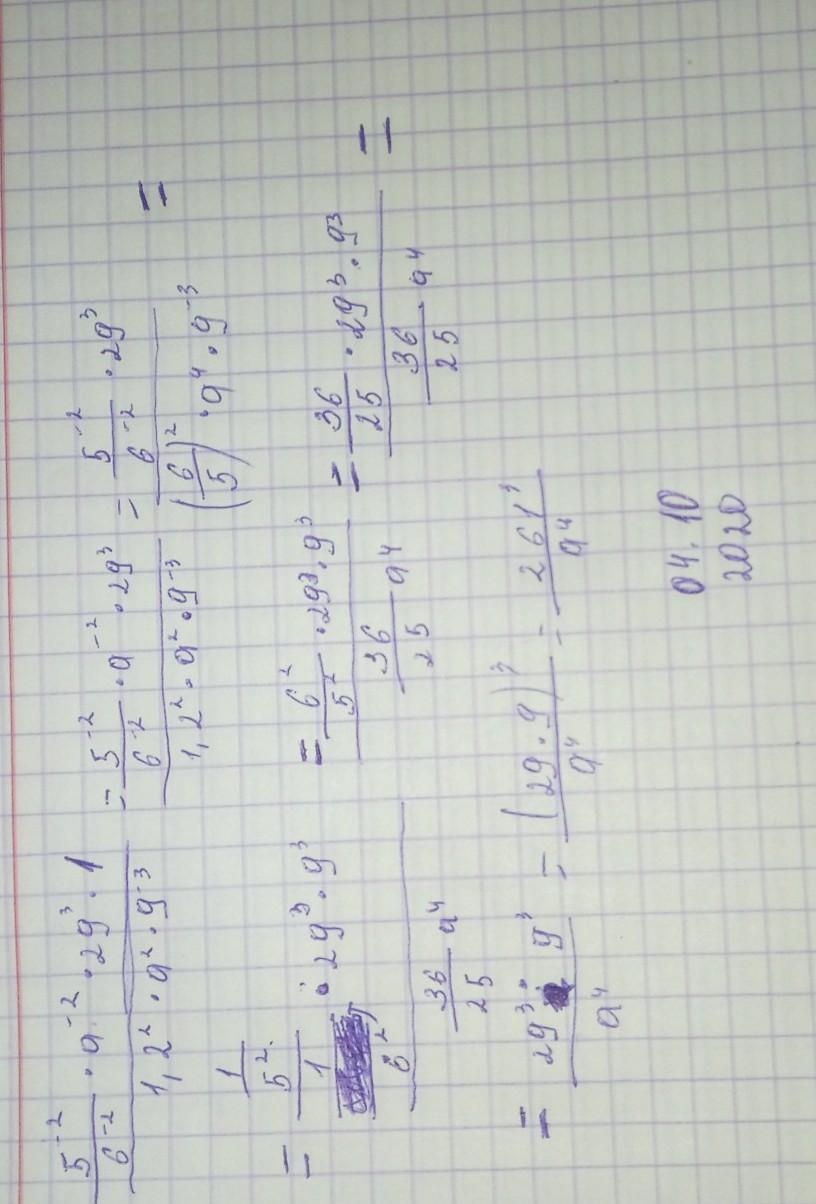 \frac{\frac{5^{-2}}{6^{-2}} · a^{-2} · 29^3 · 1}{1,2^2 · a^2 · 9^{-3}} = \frac{\frac{5^{-2}}{6^{-2}} · a^{-2} · 29^3}{1,2^2 · a^2 · 9^{-3}} = \frac{\frac{5^{-2}}{6^{-2}} · 29^3}{(\frac{6}{5})^2 · a^4 · 9^{-3}} =
= \frac{\frac{\frac{1}{5^2}}{\frac{1}{6^2}} · 29^3 · 9^3}{\frac{36}{25} a^4} = \frac{\frac{6^2}{5^2} · 29^3 · 9^3}{\frac{36}{25} a^4} = \frac{\frac{36}{25} · 29^3 · 9^3}{\frac{36}{25} · a^4} =
= \frac{29^3 · 9^3}{a^4} = \frac{(29 · 9)^3}{a^4} = \frac{261^3}{a^4}
04.10
2020